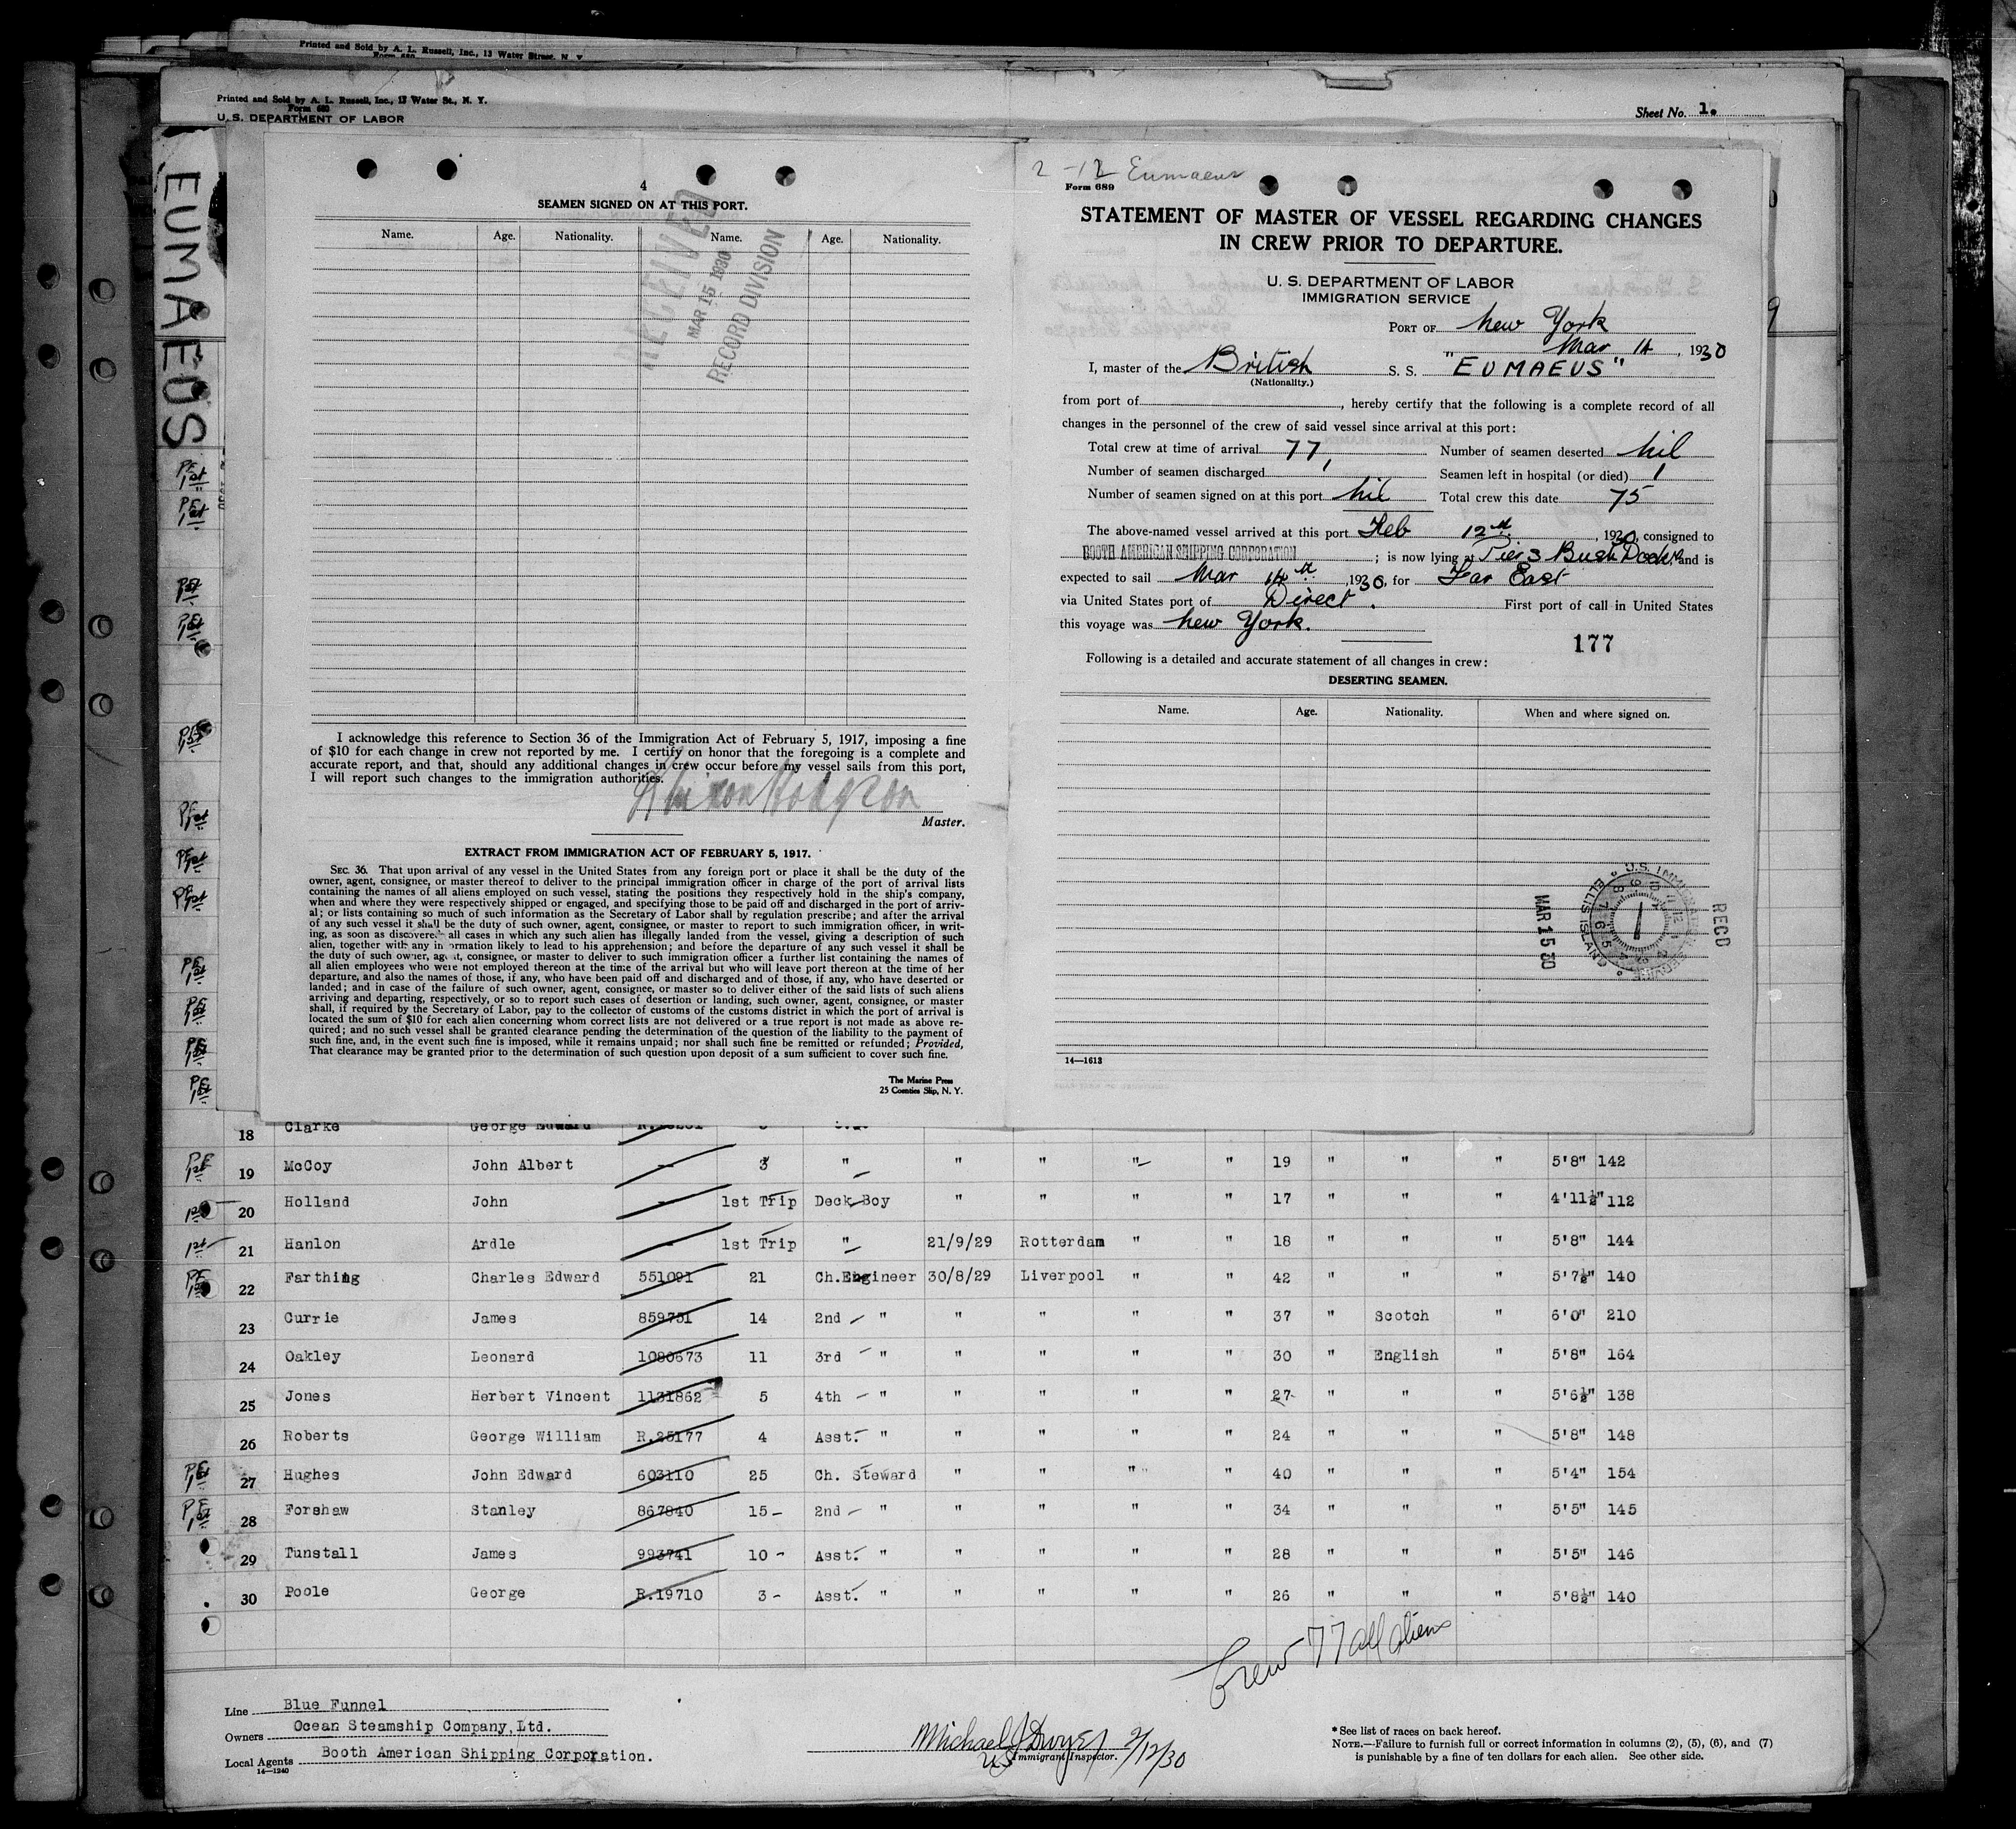 Printed and Sold by A. L. Russell, Inc., 13 Water Street, N. Y.
Form 680
Printed and Sold by A. L. Russell, Inc., 13 Water St., N. Y.
Form 680
U. S. DEPARTMENT OF LABOR
Sheet No. 1.
EUMAEUS
4
SEAMEN SIGNED ON AT THIS PORT.
Name. Age. Nationality. Name. Age. Nationality.
RECEIVED
MAR 15 1930
RECORD DIVISION
I acknowledge this reference to Section 36 of the Immigration Act of February 5, 1917, imposing a fine
of $10 for each change in crew not reported by me. I certify on honor that the foregoing is a complete and
accurate report, and that, should any additional changes in crew occur before my vessel sails from this port,
I will report such changes to the immigration authorities.
Hodgson
Master.
EXTRACT FROM IMMIGRATION ACT OF FEBRUARY 5, 1917.
SEC. 36. That upon arrival of any vessel in the United States from any foreign port or place it shall be the duty of the
owner, agent, consignee, or master thereof to deliver to the principal immigration officer in charge of the port of arrival lists
containing the names of all aliens employed on such vessel, stating the positions they respectively hold in the ship's company,
when and where they were respectively shipped or engaged, and specifying those to be paid off and discharged in the port of arriv-
al; or lists containing so much of such information as the Secretary of Labor shall by regulation prescribe; and after the arrival
of any such vessel it shall be the duty of such owner, agent, consignee, or master to report to such immigration officer, in writ-
ing, as soon as discovered all cases in which any such alien has illegally landed from the vessel, giving a description of such
alien, together with any in ormation likely to lead to his apprehension; and before the departure of any such vessel it shall be
the duty of such owner, agent, consignee, or master to deliver to such immigration officer a further list containing the names of
all alien employees who were not employed thereon at the time of the arrival but who will leave port thereon at the time of her
departure, and also the names of those, if any, who have been paid off and discharged and of those, if any, who have deserted or
landed; and in case of the failure of such owner, agent, consignee, or master so to deliver either of the said lists of such aliens
arriving and departing, respectively, or so to report such cases of desertion or landing, such owner, agent, consignee, or master
shall, if required by the Secretary of Labor, pay to the collector of customs of the customs district in which the port of arrival is
located the sum of $10 for each alien concerning whom correct lists are not delivered or a true report is not made as above re-
quired; and no such vessel shall be granted clearance pending the determination of the question of the liability to the payment of
such fine, and, in the event such fine is imposed, while it remains unpaid; nor shall such fine be remitted or refunded; Provided,
That clearance may be granted prior to the determination of such question upon deposit of a sum sufficient to cover such fine.
The Marine Press
25 Coenties Slip, N. Y.
2-12 Eumaeus
Form 689
STATEMENT OF MASTER OF VESSEL REGARDING CHANGES
IN CREW PRIOR TO DEPARTURE.
U. S. DEPARTMENT OF LABOR
IMMIGRATION SERVICE
PORT OF New York
Mar 14, 1930
I, master of the British S. S. "EUMAEUS"
(Nationality.)
from port of , hereby certify that the following is a complete record of all
changes in the personnel of the crew of said vessel since arrival at this port:
Total crew at time of arrival 77 Number of seamen deserted nil
Number of seamen discharged 1 Seamen left in hospital (or died) 1
Number of seamen signed on at this port nil Total crew this date 75
The above-named vessel arrived at this port Feb 12th, 1930, consigned to
BOOTH AMERICAN SHIPPING CORPORATION ; is now lying at Pier 3 Bush Docks, and is
expected to sail Mar 14th, 1930, for Far East
via United States port of Direct. First port of call in United States
this voyage was New York.
177
Following is a detailed and accurate statement of all changes in crew:
DESERTING SEAMEN.
Name. Age. Nationality. When and where signed on.
MAR 15 30
RECD
U.S. IMMIGRATION SERVICE ELLIS ISLAND
14—1613
18 Clarke George Edward
19 McCoy John Albert — 3 " " " " " 19 " " " 5'8" 142
20 Holland John — 1st Trip Deck Boy " " " " 17 " " " 4'11½" 112
21 Hanlon Ardle — 1st Trip " 21/9/29 Rotterdam " " 18 " " " 5'8" 144
22 Farthing Charles Edward 551091 21 Ch.Engineer 30/8/29 Liverpool " " 42 " " " 5'7½" 140
23 Currie James 859751 14 2nd " " " " " 37 " Scotch " 6'0" 210
24 Oakley Leonard 1080673 11 3rd " " " " " 30 " English " 5'8" 164
25 Jones Herbert Vincent 1131862 5 4th " " " " " 27 " " " 5'6½" 138
26 Roberts George William R.25177 4 Asst. " " " " " 24 " " " 5'8" 148
27 Hughes John Edward 603110 25 Ch. Steward " " " " 40 " " " 5'4" 154
28 Forshaw Stanley 867840 15 2nd " " " " " 34 " " " 5'5" 145
29 Tunstall James 993741 10 Asst. " " " " " 28 " " " 5'5" 146
30 Poole George R.19710 3 Asst. " " " " " 26 " " " 5'8½" 140
Crew 77 all aliens
Line Blue Funnel
Owners Ocean Steamship Company,Ltd.
Local Agents Booth American Shipping Corporation.
14—1240
Michael J Dwyer 2/12/30
US Immigrant Inspector.
* See list of races on back hereof.
NOTE.—Failure to furnish full or correct information in columns (2), (5), (6), and (7)
is punishable by a fine of ten dollars for each alien. See other side.